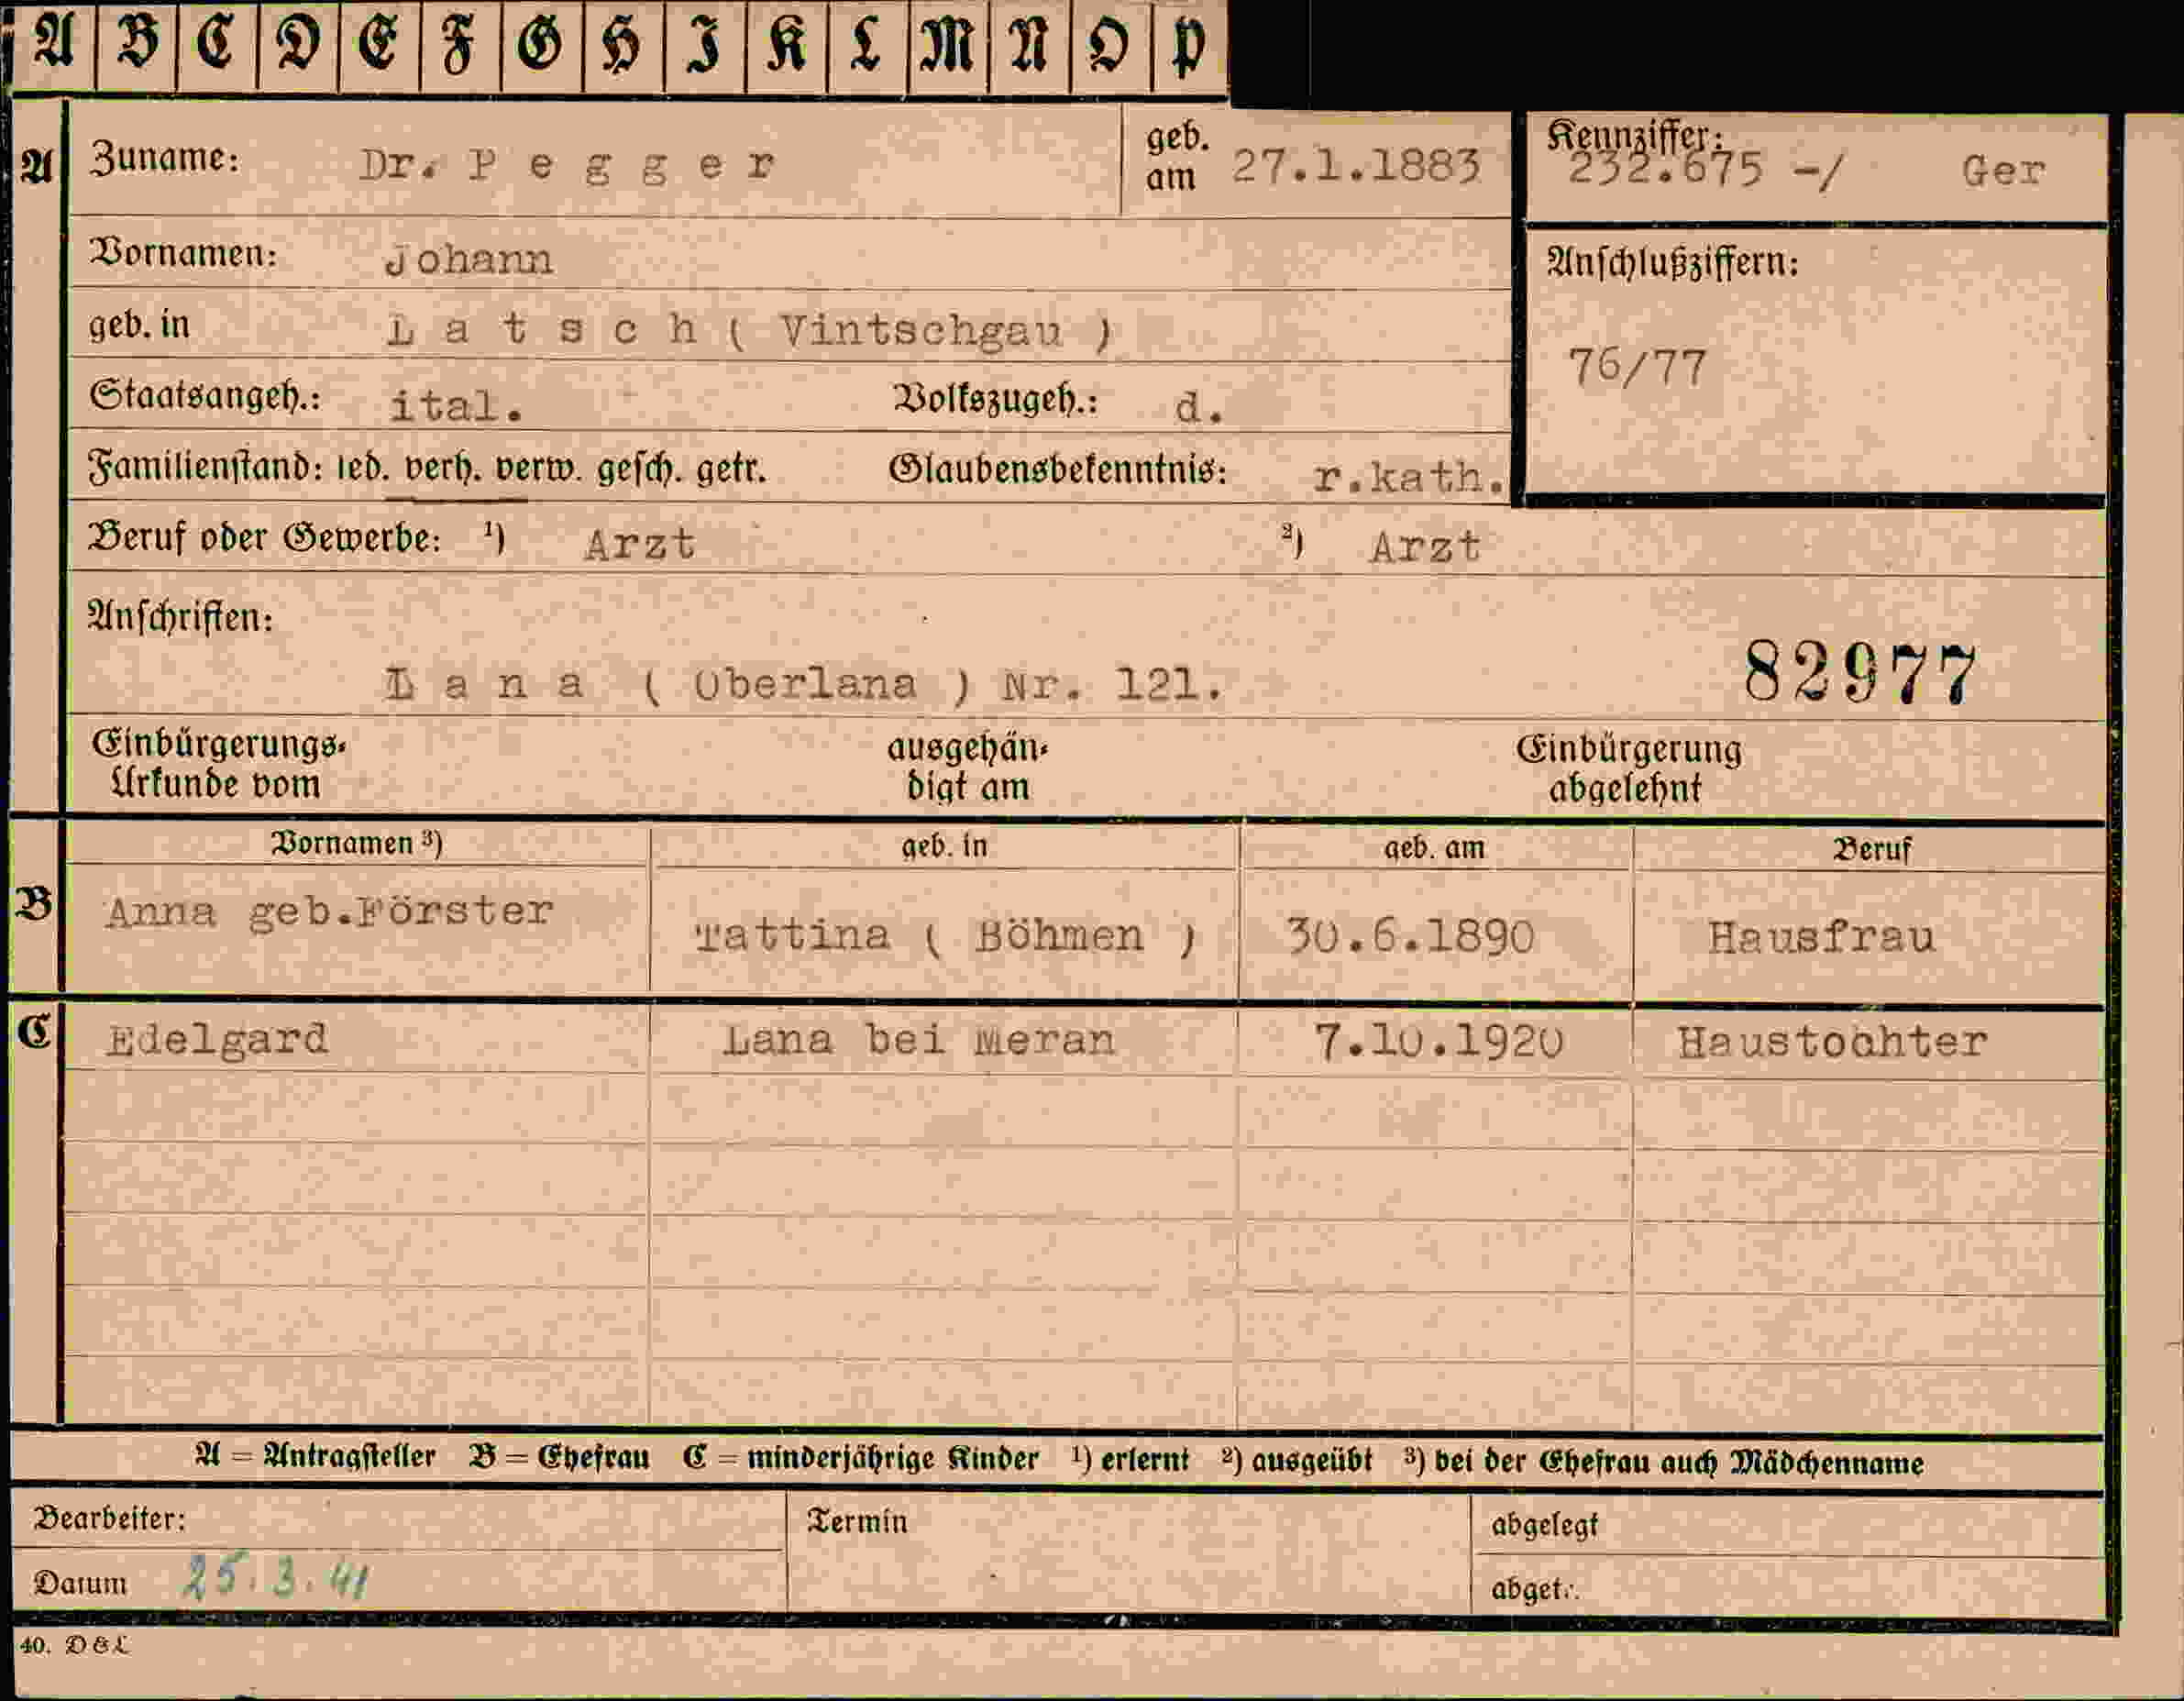 A B C D E F G H I K L M N O P
A Zuname: Dr. P e g g e r geb. am 27.1.1883 Kennziffer: 232.675 -/ Ger
Vornamen: Johann Anschlußziffern:
geb. in L a t s c h ( Vintschgau ) 76/77
Staatsangeh.: ital. Volkszugeh.: d.
Familienstand: led. verh. verw. gesch. getr. Glaubensbekenntnis: r.kath.
Beruf oder Gewerbe: ¹) Arzt ²) Arzt
Anschriften:
L a n a ( Oberlana ) Nr. 121. 82977
Einbürgerungs- ausgehän- Einbürgerung
Urkunde vom digt am abgelehnt
Vornamen ³) geb. in geb. am Beruf
B Anna geb.Förster Tattina ( Böhmen ) 30.6.1890 Hausfrau
C Edelgard Lana bei Meran 7.10.1920 Haustochter
A = Antragsteller B = Ehefrau C = minderjährige Kinder ¹) erlernt ²) ausgeübt ³) bei der Ehefrau auch Mädchenname
Bearbeiter: Termin abgelegt
Datum 25.3.41
40. D&L